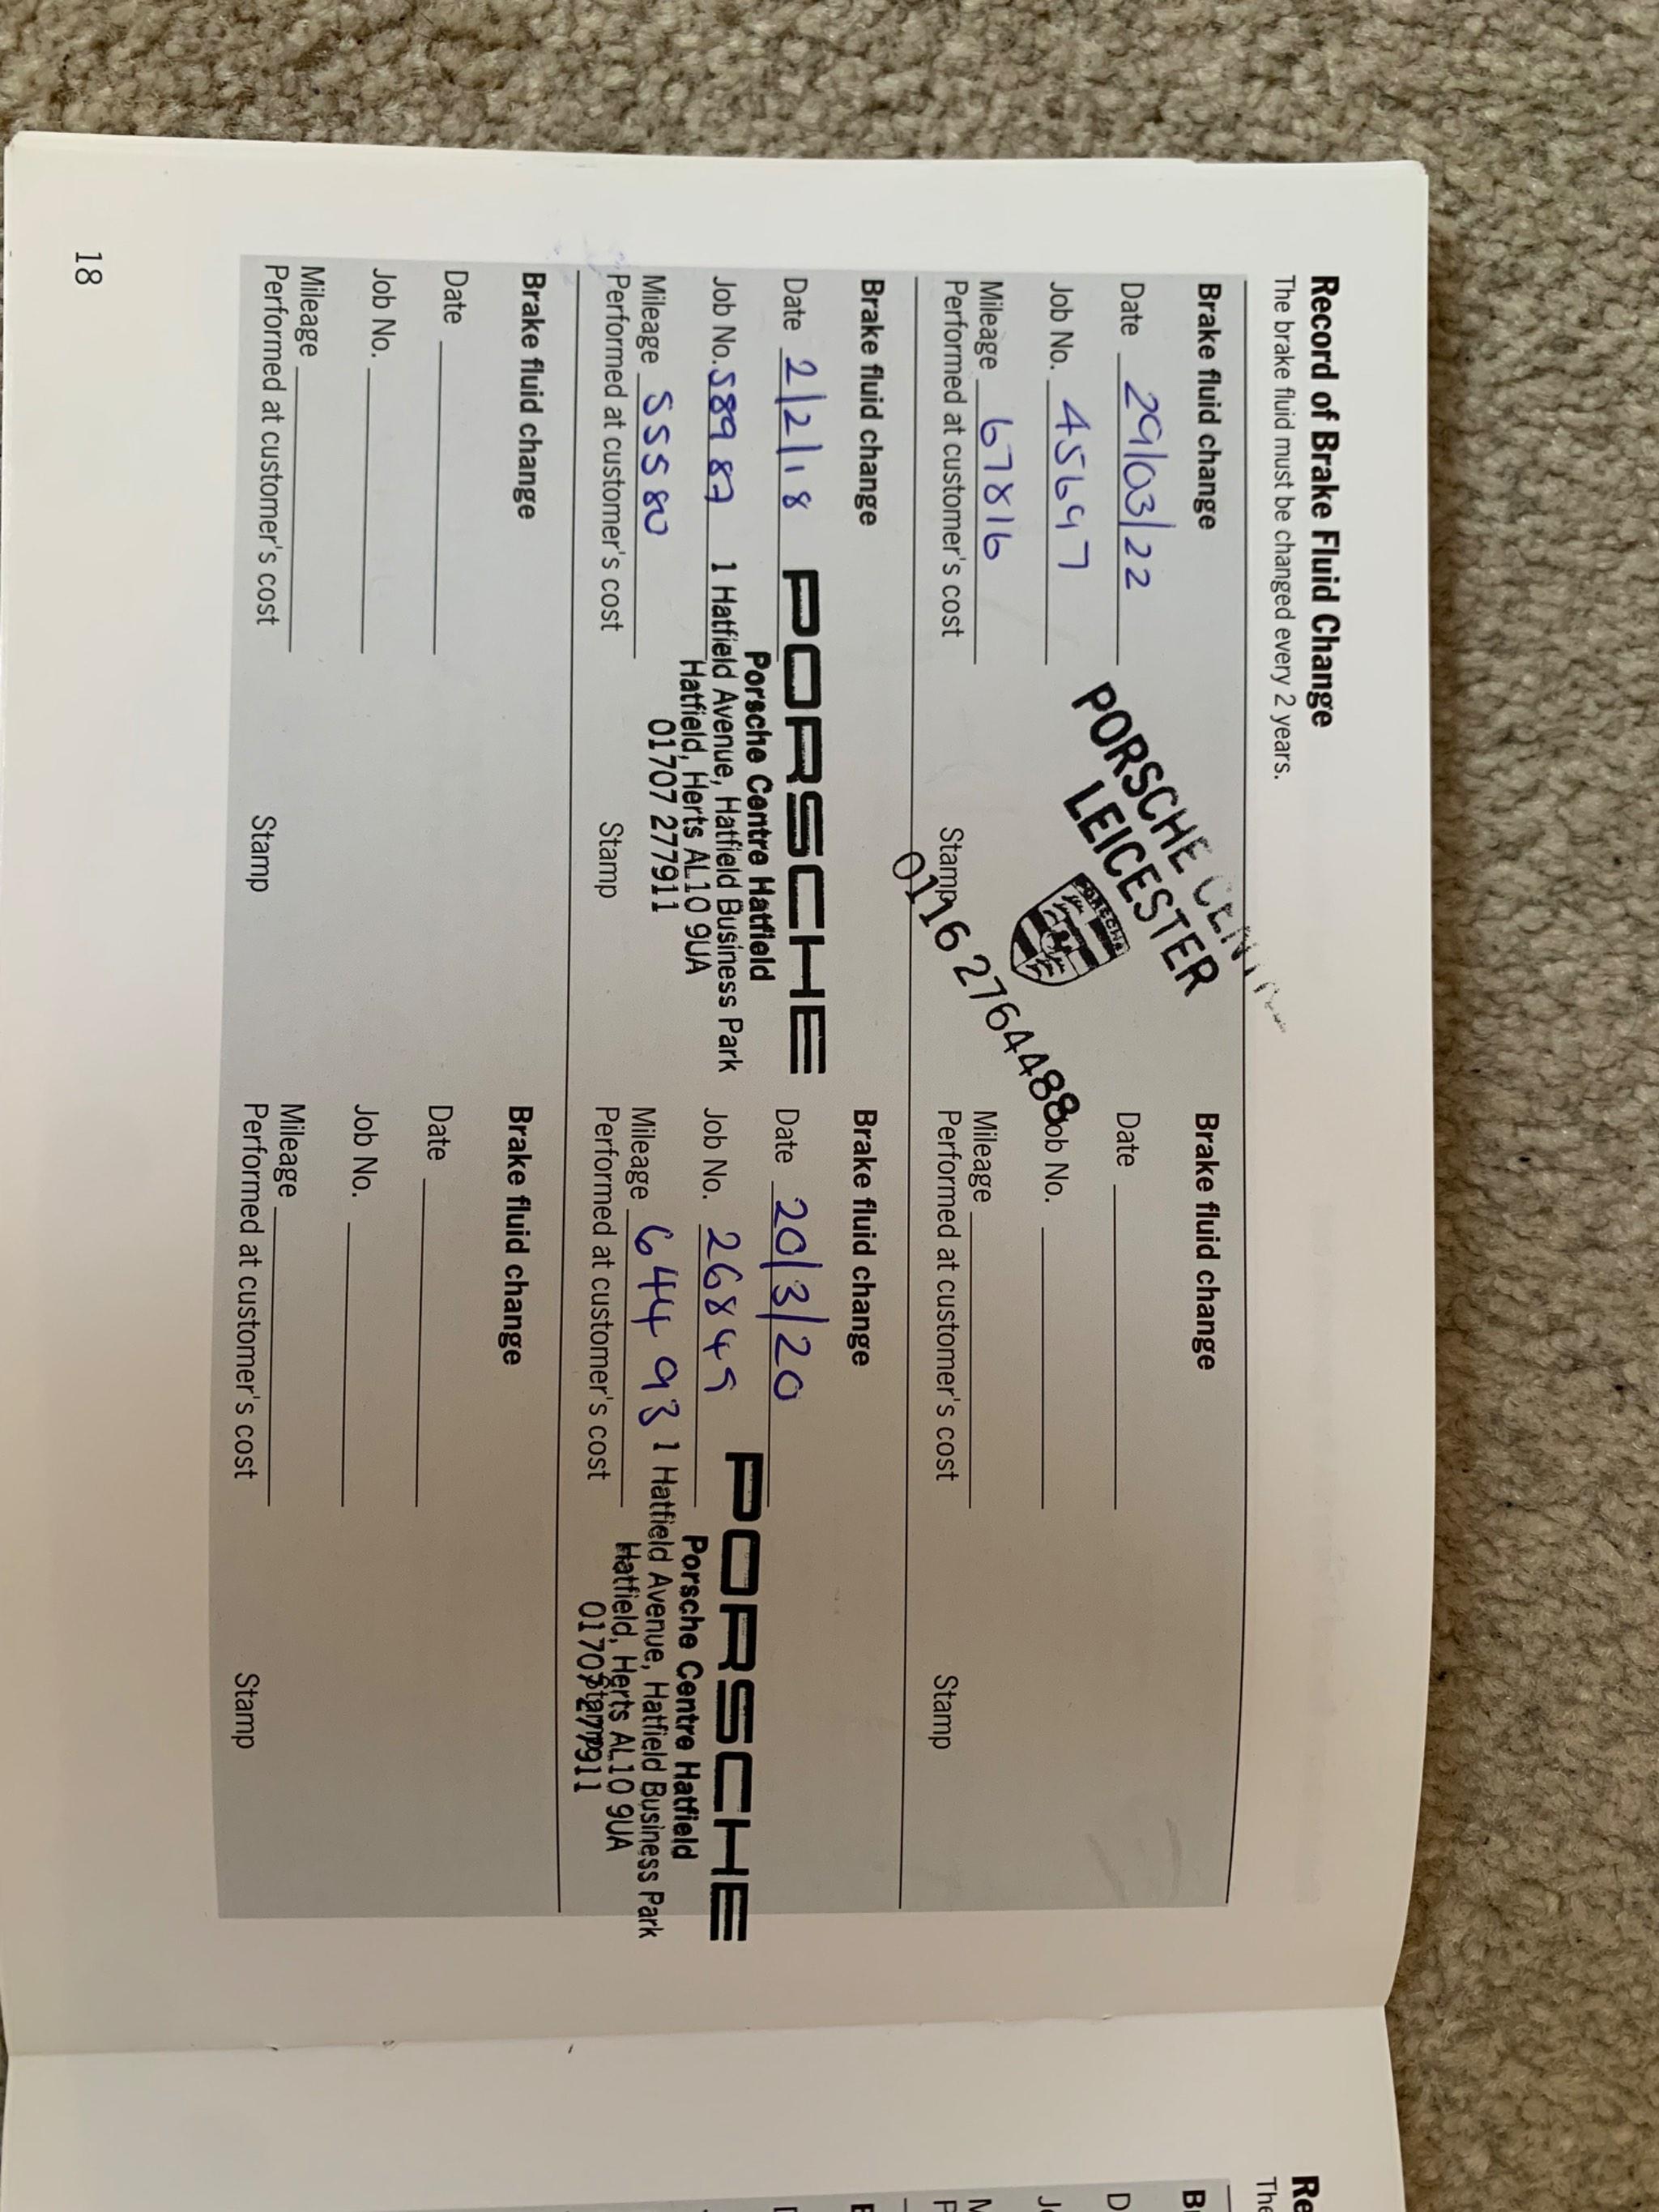 Record of Brake Fluid Change
The brake fluid must be changed every 2 years.
Brake fluid change
Date 29/03/22
Job No. 45697
Mileage 67816
Performed at customer's cost
Stamp
PORSCHE CENTRE
LEICESTER
PORSCHE
0116 2764488
Brake fluid change
Date
Job No.
Mileage
Performed at customer's cost
Stamp
Brake fluid change
Date 2/2/18
Job No. 58987
Mileage 55580
Performed at customer's cost
Stamp
PORSCHE
Porsche Centre Hatfield
1 Hatfield Avenue, Hatfield Business Park
Hatfield, Herts AL10 9UA
01707 277911
Brake fluid change
Date 20/3/20
Job No. 26849
Mileage 64493
Performed at customer's cost
Stamp
PORSCHE
Porsche Centre Hatfield
1 Hatfield Avenue, Hatfield Business Park
Hatfield, Herts AL10 9UA
01707 277911
Brake fluid change
Date
Job No.
Mileage
Performed at customer's cost
Stamp
Brake fluid change
Date
Job No.
Mileage
Performed at customer's cost
Stamp
18